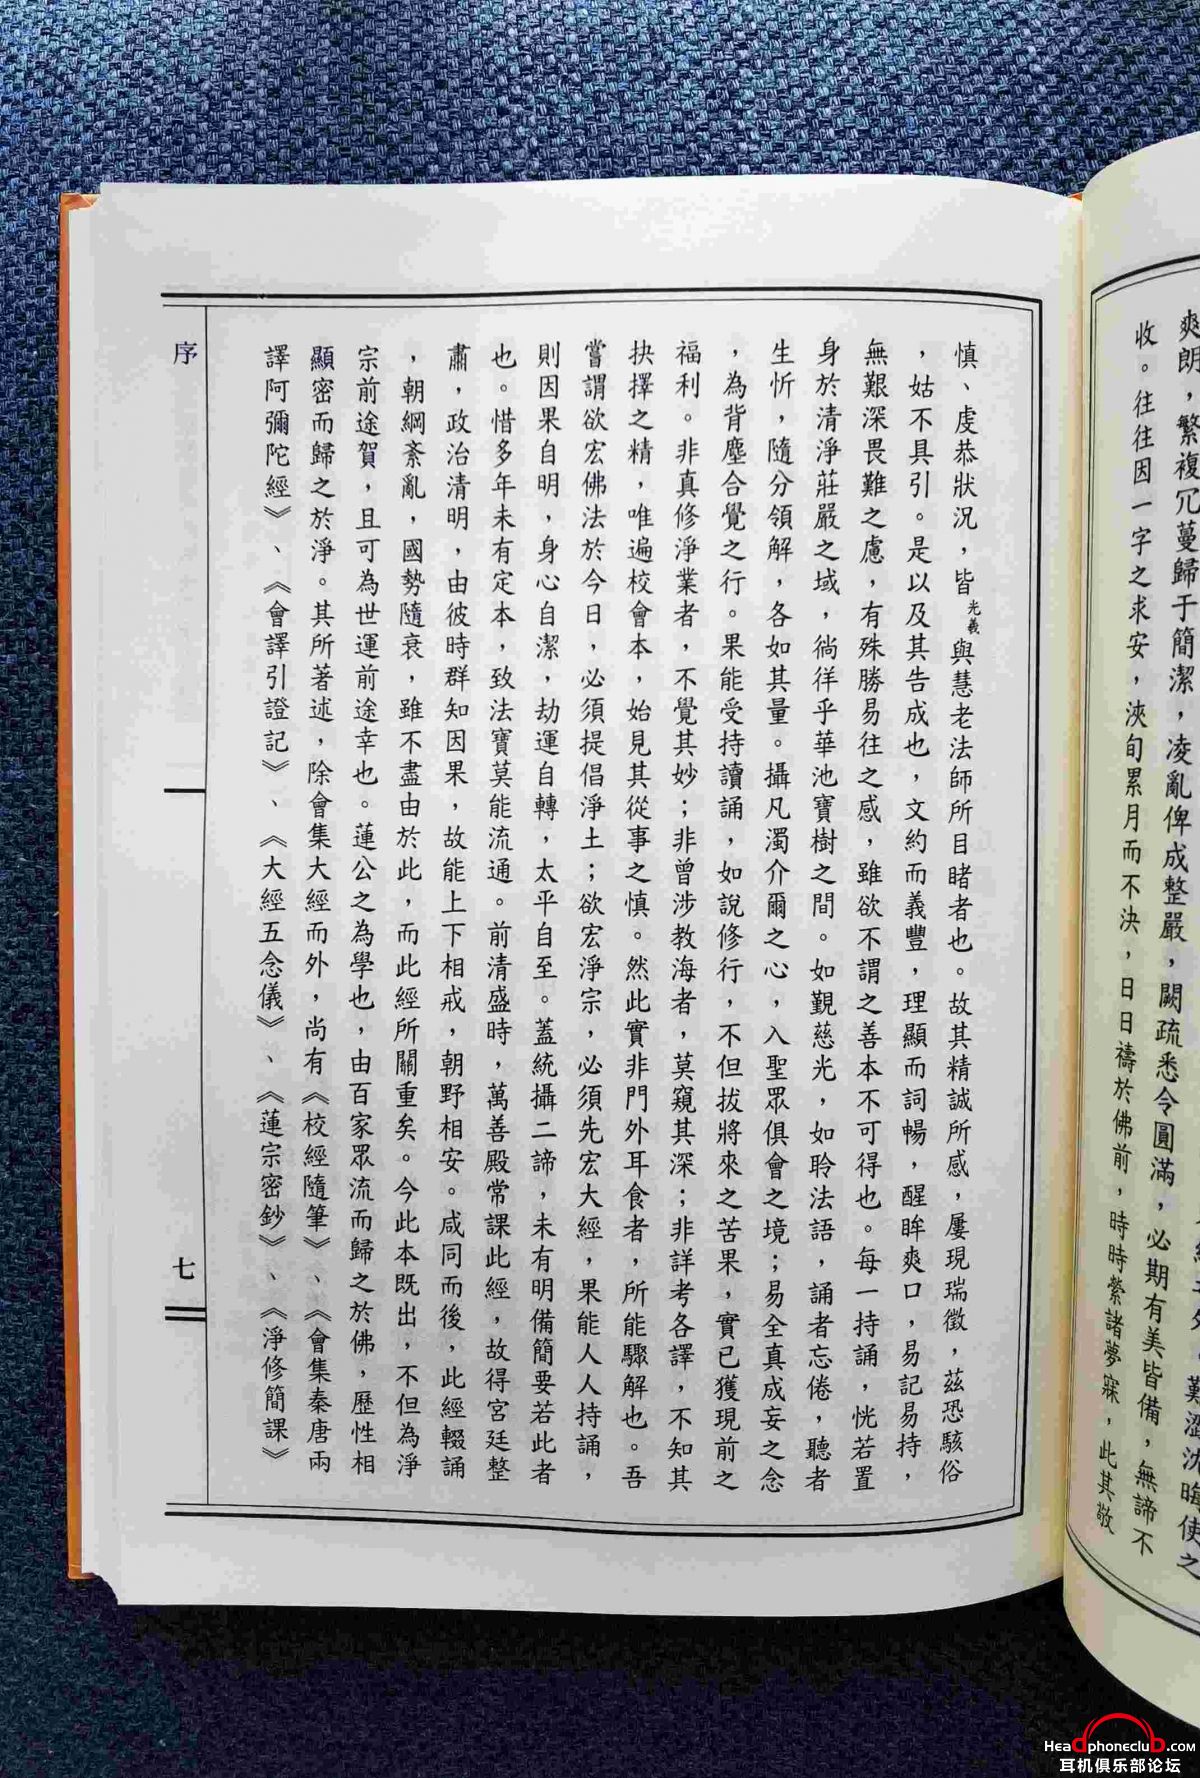 爽朗，繁複冗蔓歸于簡潔，凌亂俾成整嚴，闕疏悉令圓滿，必期有美皆備，無諦不
收。往往因一字之求安，浹旬累月而不決，日日禱於佛前，時時縈諸夢寐，此其敬
慎、虔恭狀況，皆光羲與慧老法師所目睹者也。故其精誠所感，屢現瑞徵，茲恐駭俗
，姑不具引。是以及其告成也，文約而義豐，理顯而詞暢，醒眸爽口，易記易持，
無艱深畏難之慮，有殊勝易往之感，雖欲不謂之善本不可得也。每一持誦，恍若置
身於清淨莊嚴之域，徜徉乎華池寶樹之間。如覲慈光，如聆法語，誦者忘倦，聽者
生忻，隨分領解，各如其量。攝凡濁介爾之心，入聖眾俱會之境；易全真成妄之念
，為背塵合覺之行。果能受持讀誦，如說修行，不但拔將來之苦果，實已獲現前之
福利。非真修淨業者，不覺其妙；非曾涉教海者，莫窺其深；非詳考各譯，不知其
抉擇之精，唯遍校會本，始見其從事之慎。然此實非門外耳食者，所能驟解也。吾
嘗謂欲宏佛法於今日，必須提倡淨土；欲宏淨宗，必須先宏大經，果能人人持誦，
則因果自明，身心自潔，劫運自轉，太平自至。蓋統攝二諦，未有明備簡要若此者
也。惜多年未有定本，致法寶莫能流通。前清盛時，萬善殿常課此經，故得宮廷整
肅，政治清明，由彼時群知因果，故能上下相戒，朝野相安。咸同而後，此經輟誦
，朝綱紊亂，國勢隨衰，雖不盡由於此，而此經所關重矣。今此本既出，不但為淨
宗前途賀，且可為世運前途幸也。蓮公之為學也，由百家眾流而歸之於佛，歷性相
顯密而歸之於淨。其所著述，除會集大經而外，尚有《校經隨筆》、《會集秦唐兩
譯阿彌陀經》、《會譯引證記》、《大經五念儀》、《蓮宗密鈔》、《淨修簡課》
序
七
Headphoneclub.com
耳机俱乐部论坛